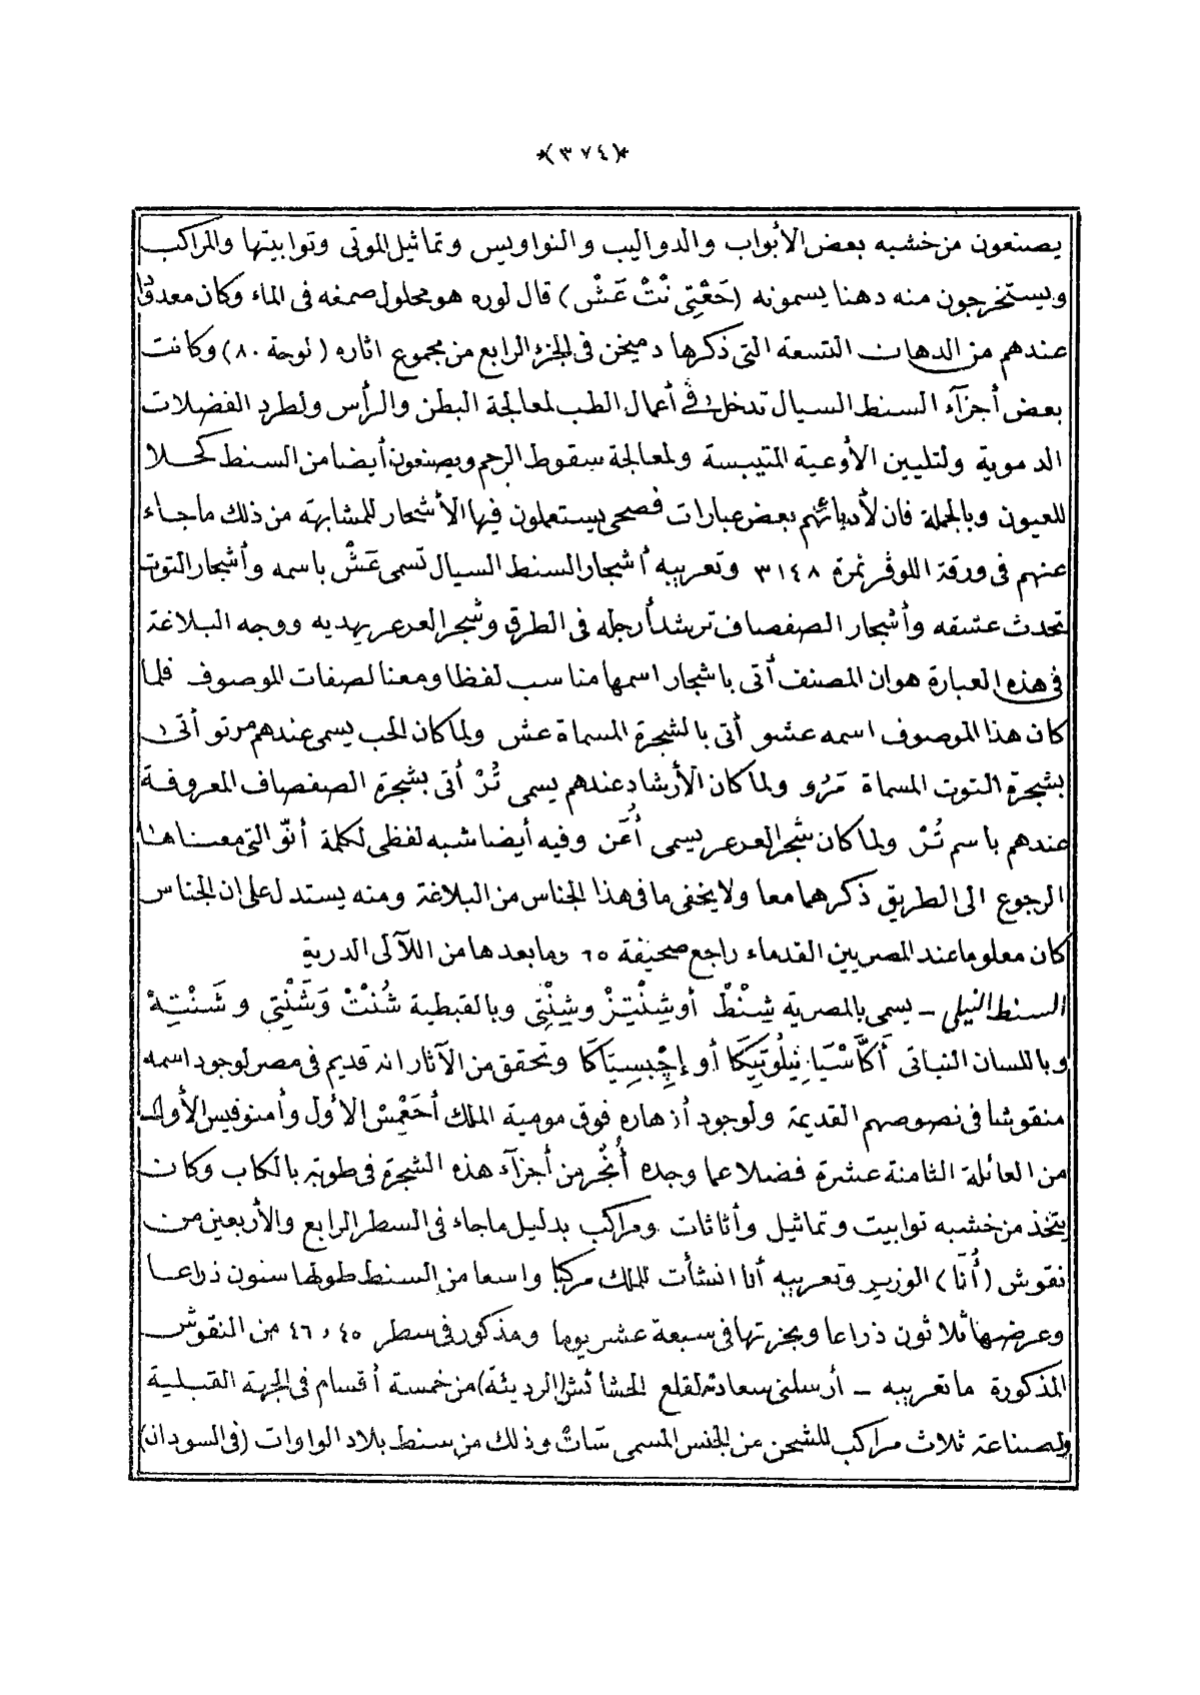 *(٣٧٤)*
يصنعون من خشبه بعض الأبواب والدواليب والنواويس وتماثيل الموتى وتوابيتها والمراكب
ويستخرجون منه دهنا يسمونه (حَعْتِى نْتْ عَشْ) قال لوره هو محلول صمغه فى الماء وكان معدودا
عندهم من الدهانات التسعة التى ذكرها دميخن فى الجزء الرابع من مجموع اثاره (لوحة ٨٠) وكانت
بعض أجزآء السنط السيال تدخل فى أعمال الطب لمعالجة البطن والرأس ولطرد الفضلات
الدموية ولتليين الأوعية المتيبسة ولمعالجة سقوط الرحم ويصنعون أيضا من السنط كحلا
للعيون وبالجملة فان لأدبائهم بعض عبارات فصحى يستعملون فيها الأشحار للمشابهة من ذلك ماجاء
عنهم فى ورقة اللوڤر نمرة ٣١٤٨ وتعريبه أشجار السنط السيال تسمى عَشْ باسمه وأشجار التوت
تحدث عشقه وأشجار الصفصاف ترشد أرجله فى الطرق وشجر العرعر يهديه ووجه البلاغة
فى هذه العبارة هو ان المصنف أتى باشجار اسمها مناسب لفظا ومعنا لصفات الموصوف فلما
كان هذا الموصوف اسمه عشو أتى بالشجرة المسماة عش ولما كان الحب يسمى عندهم مرتو أتى
بشجرة التوت المسماة مَرُو ولما كان الأرشاد عندهم يسمى تُرْ أتى بشجرة الصفصاف المعروفة
عندهم باسم تُرْ ولما كان شجر العرعر يسمى أُعَن وفيه أيضا شبه لفظى لكلمة أنّو التى معناها
الرجوع الى الطريق ذكرهما معا ولا يخفى ما فى هذا الجناس من البلاغة ومنه يستدل على ان الجناس
كان معلوما عند المصريين القدماء راجع صحيفة ٦٥ وما بعدها من اللآلى الدرية
السنط النيلى — يسمى بالمصرية شِنْطْ أو شِنْتِيزْ وشِنْتِى وبالقبطية شُنْتْ وَشَنْتِى و شَنْتِهْ
وباللسان النباتى أَكَّاسْيَا نِيلُوتِيكَا أو إِجْبسِيَاكَا وتحقق من الآثار انه قديم فى مصر لوجود اسمه
منقوشا فى نصوصهم القديمة ولوجود أزهاره فوق مومية الملك أحَعْمِسْ الأول وأمنوفيس الأول
من العائلة الثامنة عشرة فضلا عما وجده أُنْجُر من أجزآء هذه الشجرة فى طوبة بالكاب وكان
يتخذ من خشبه توابيت وتماثيل وأثاثات ومراكب بدليل ماجاء فى السطر الرابع والأربعين من
نقوش (أُنَا) الوزير وتعريبه أنا انشأت للملك مركبا واسعا من السنط طولها ستون ذراعا
وعرضها ثلاثون ذراعا ونجزتها فى سبعة عشر يوما ومذكور فى سطر ٤٥ و ٤٦ من النقوش
المذكورة ما تعريبه — أرسلنى سعادته لقلع الحشائش (الرديئة) من خمسة أقسام فى الجهة القبلية
ولصناعة ثلاث مراكب للشحن من الجنس المسمى سَاتْ وذلك من سنط بلاد الواوات (فى السودان)